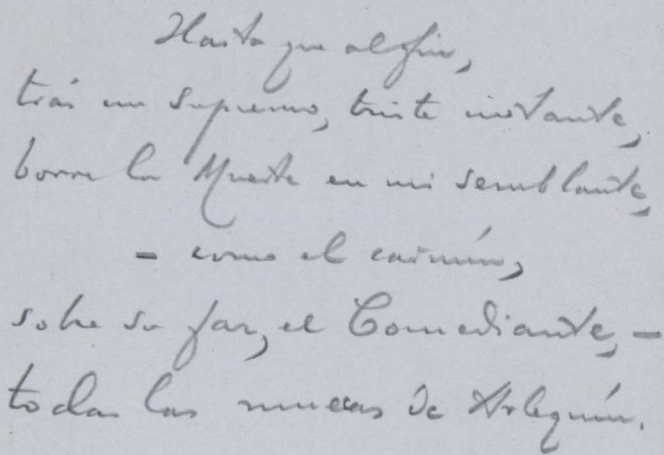 Hasta que al fin,
trás un supremo, triste instante,
borre la Muerte en mi semblante,
- como el carmín,
sobre su faz, el Comediante, -
todas las muecas de Arlequín.